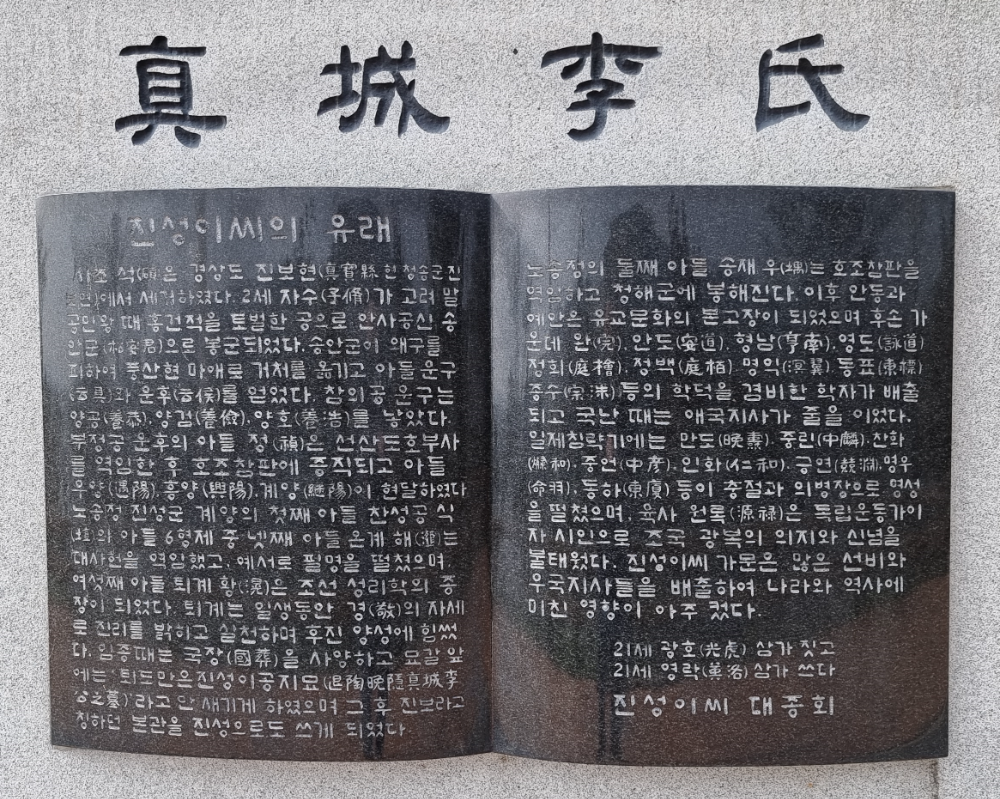 真城李氏
진성이씨의 유래
시조 석(碩)은 경상도 진보현(真寶縣 현 청송군진
보면)에서 세거하였다. 2세 자수(子脩)가 고려 말
공민왕 때 홍건적을 토벌한 공으로 안사공신 송
안군(松安君)으로 봉군되었다. 송안군이 왜구를
피하여 풍산현 마애로 거처를 옮기고 아들운구
(云具)와 운후(云侯)를 얻었다. 참의공 운구는
양공(養恭), 양검(養儉), 양호(養浩)를 낳았다.
부정공 운후의 아들 정(禎)은 선산도호부사
를 역임한 후 호조참판에 증직되고 아들
우양(遇陽), 흥양(興陽), 계양(繼陽)이 현달하였다
노송정 진성군 계양의 첫째 아들 찬성공 식
(埴)의 아들 6형제 중 넷째 아들 온계 해(瀣)는
대사헌을 역임했고, 예서로 필명을 떨쳤으며,
여섯째 아들 퇴계 황(滉)은 조선 성리학의 종
장이 되었다. 퇴계는 일생동안 경(敬)의 자세
로 진리를 밝히고 실천하며 후진 양성에 힘썼
다. 임종때는 국장(國葬)을 사양하고 묘갈 앞
에는 퇴도만은진성이공지묘(退陶晚隱真城李
公之墓)라고만 새기게 하였으며 그 후 진보라고
칭하던 본관을 진성으로도 쓰게 되었다.
노송정의 둘째 아들 송재 우(堣)는 호조참판을
역임하고 청해군에 봉해진다. 이후 안동과
예안은 유교문화의 본고장이 되었으며 후손 가
운데 완(完), 안도(安道), 형남(亨南), 영도(詠道)
정회(庭檜), 정백(庭栢) 명익(溟翼) 동표(東標)
종수(宗洙) 등의 학덕을 겸비한 학자가 배출
되고 국난 때는 애국지사가 줄을 이었다.
일제침략기에는 만도(晩燾), 중린(中麟), 찬화
(燦和), 중언(中彦), 인화(仁和), 긍연(兢淵), 명우
(命羽), 동하(東廈) 등이 충절과 의병장으로 명성
을 떨쳤으며, 육사 원록(源禄)은 독립운동가이
자 시인으로 조국 광복의 의지와 신념을
불태웠다. 진성이씨 가문은 많은 선비와
우국지사들을 배출하여 나라와 역사에
미친 영향이 아주 컸다.
21세 광호(光虎) 삼가 짓고
21세 영락(英洛) 삼가 쓰다
진성이씨 대종회